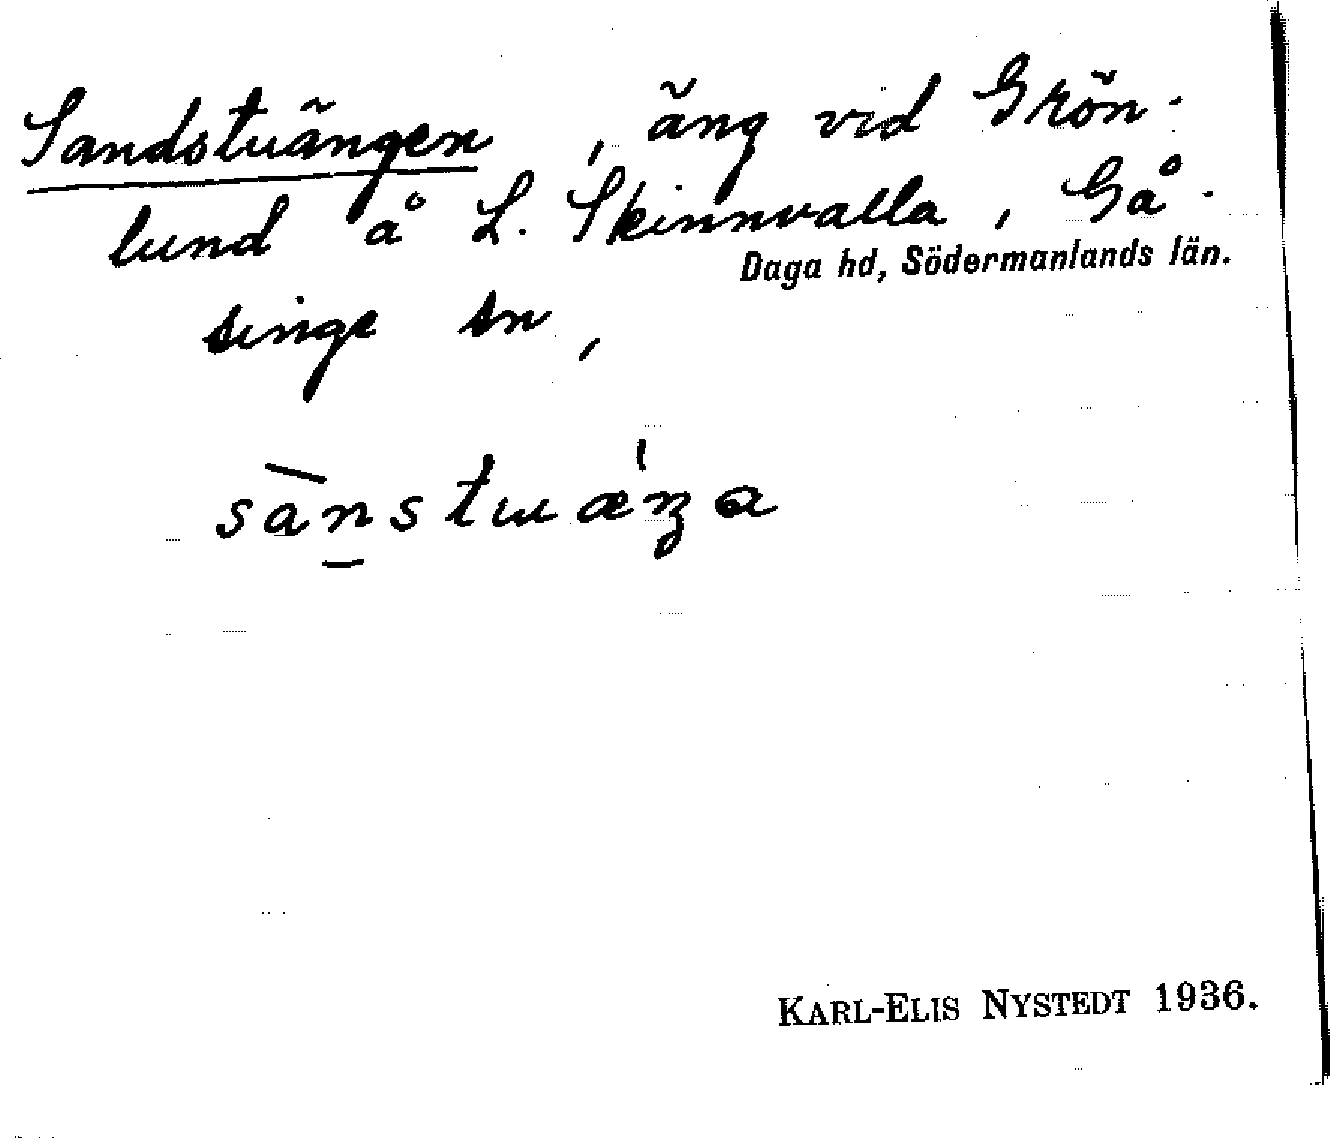 Sandstuängen, äng vid Grön-
lund å L. Skinnvalla, Gå-
Daga hd, Södermanlands län.
singe sn,
KARL-ELIS NYSTEDT 1936.